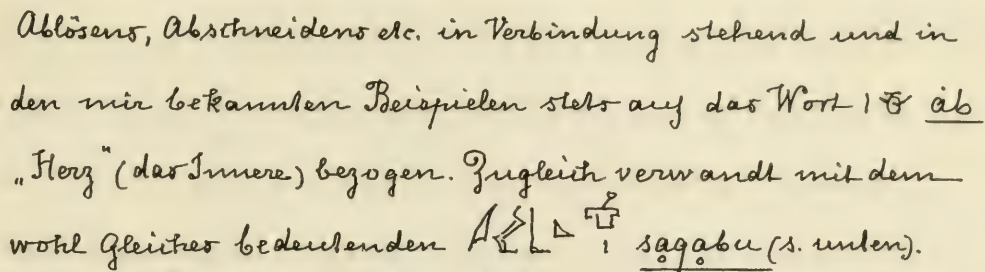 Ablösens, Abschneidens etc. in Verbindung stehend und in
den mir bekannten Beispielen stets auf das Wort àb
„Herz“ (das Innere) bezogen. Zugleich verwandt mit dem
wohl Gleiches bedeutenden (s. unten).